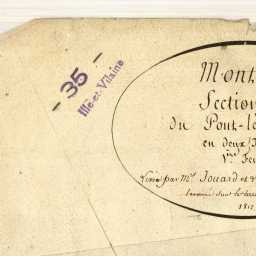 - 35 -
Ille-et-Vilaine
Mont
Section
du Pont-l
en deux
1ère Fe
Levée par Mr. Jouard et
terminé sur le
181